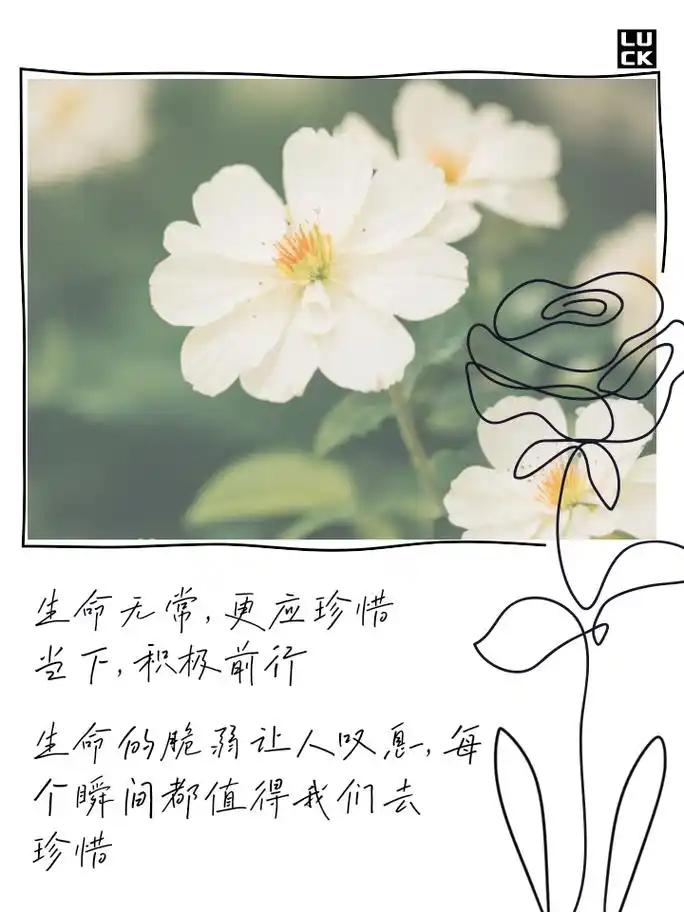 LU
CK
生命无常,更应珍惜
当下,积极前行
生命的脆弱让人叹息,每
个瞬间都值得我们去
珍惜